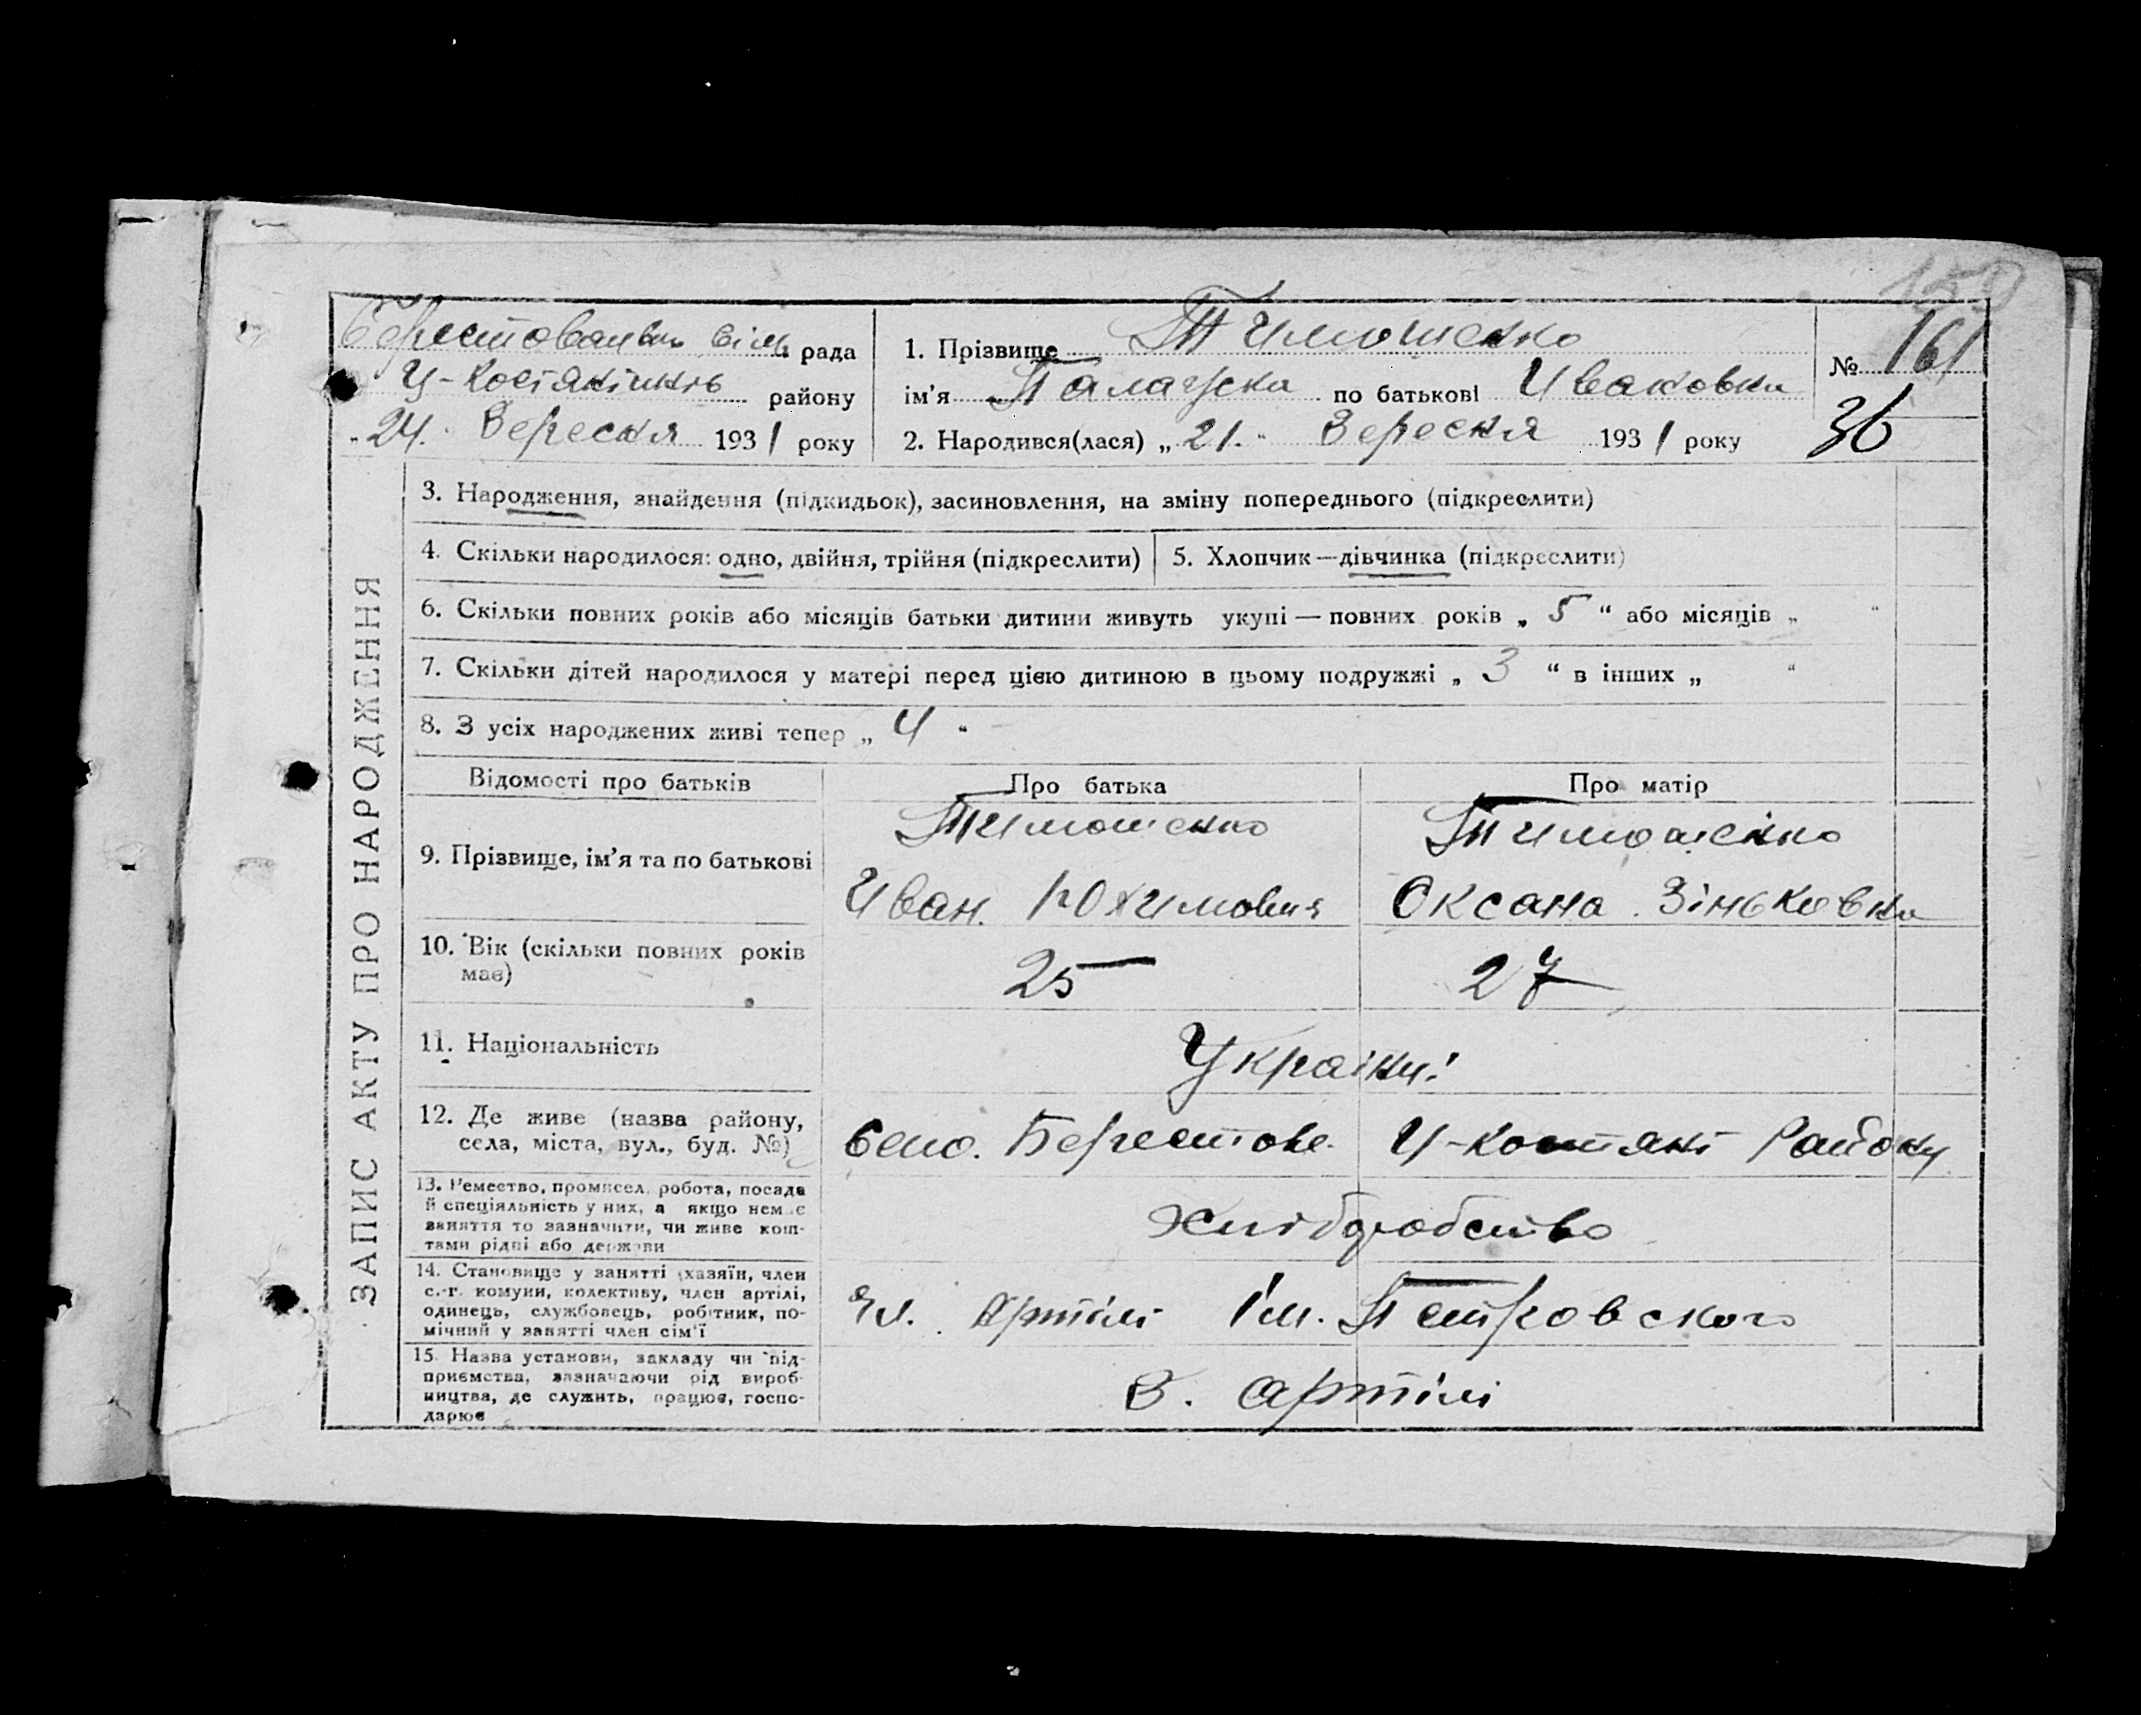 150
Берестованська сіль. рада
Ц-Костянтинів району
„24." Вересня 1931 року
1. Прізвище Тимошенко
ім'я Палажка по батькові Ивановна
2. Народився(лася) „21." Вересня 1931 року
№ 161
36
ЗАПИС АКТУ ПРО НАРОДЖЕННЯ
3. Народження, знайдення (підкидьок), засиновлення, на зміну попереднього (підкреслити)
4. Скільки народилося: одно, двійня, трійня (підкреслити)
5. Хлопчик—дівчинка (підкреслити)
6. Скільки повних років або місяців батьки дитини живуть укупі — повних років „ 5 " або місяців „ "
7. Скільки дітей народилося у матері перед цією дитиною в цьому подружжі „ 3 " в інших „ "
8. З усіх народжених живі тепер „ 4 "
Відомості про батьків Про батька Про матір
9. Прізвище, ім'я та по батькові
Тимошенко
Иван. Юхимович
Тимошенко
Оксана Зіньковна
10. Вік (скільки повних років
має)
25
27
11. Національність
Українці
12. Де живе (назва району,
села, міста, вул., буд. №)
Село. Берестове. Ц-Костянт Району
13. Ремество, промисел, робота, посада
й спеціяльність у них, а якщо немає
заняття то зазначити, чи живе кош-
тами рідні або держави
Хліборобство
14. Становище у занятті (хазяїн, член
с.-г. комуни, колективу, член артілі,
одинець, службовець, робітник, по-
мічний у занятті член сім'ї
Чл. Артілі Ім. Петровского
15. Назва установи, закладу чи під-
приємства, зазначаючи рід вироб-
ництва, де служить, працює, госпо-
дарює
В. артілі